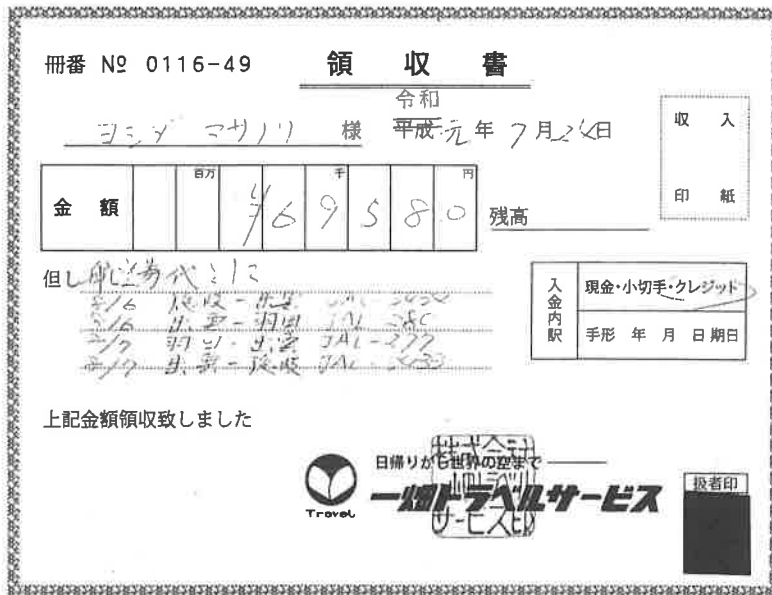 冊番 № 0116-49
領収書
令和
ヨシダ マサノリ 様 平成元年7月2 日
収入
印紙
金額 百万 千 円
¥69580
残高
但し航空券代として
8/6 隠岐-出雲 JAL-
8/6 出雲-羽田 JAL-28
8/7 羽田-出雲 JAL-277
8/7 出雲-隠岐 JAL-2433
入金内訳
現金・小切手・クレジット
手形 年 月 日期日
上記金額領収致しました
株式会社
日帰りから世界の空まで
一畑トラベルサービス
サービス印
Travel
扱者印